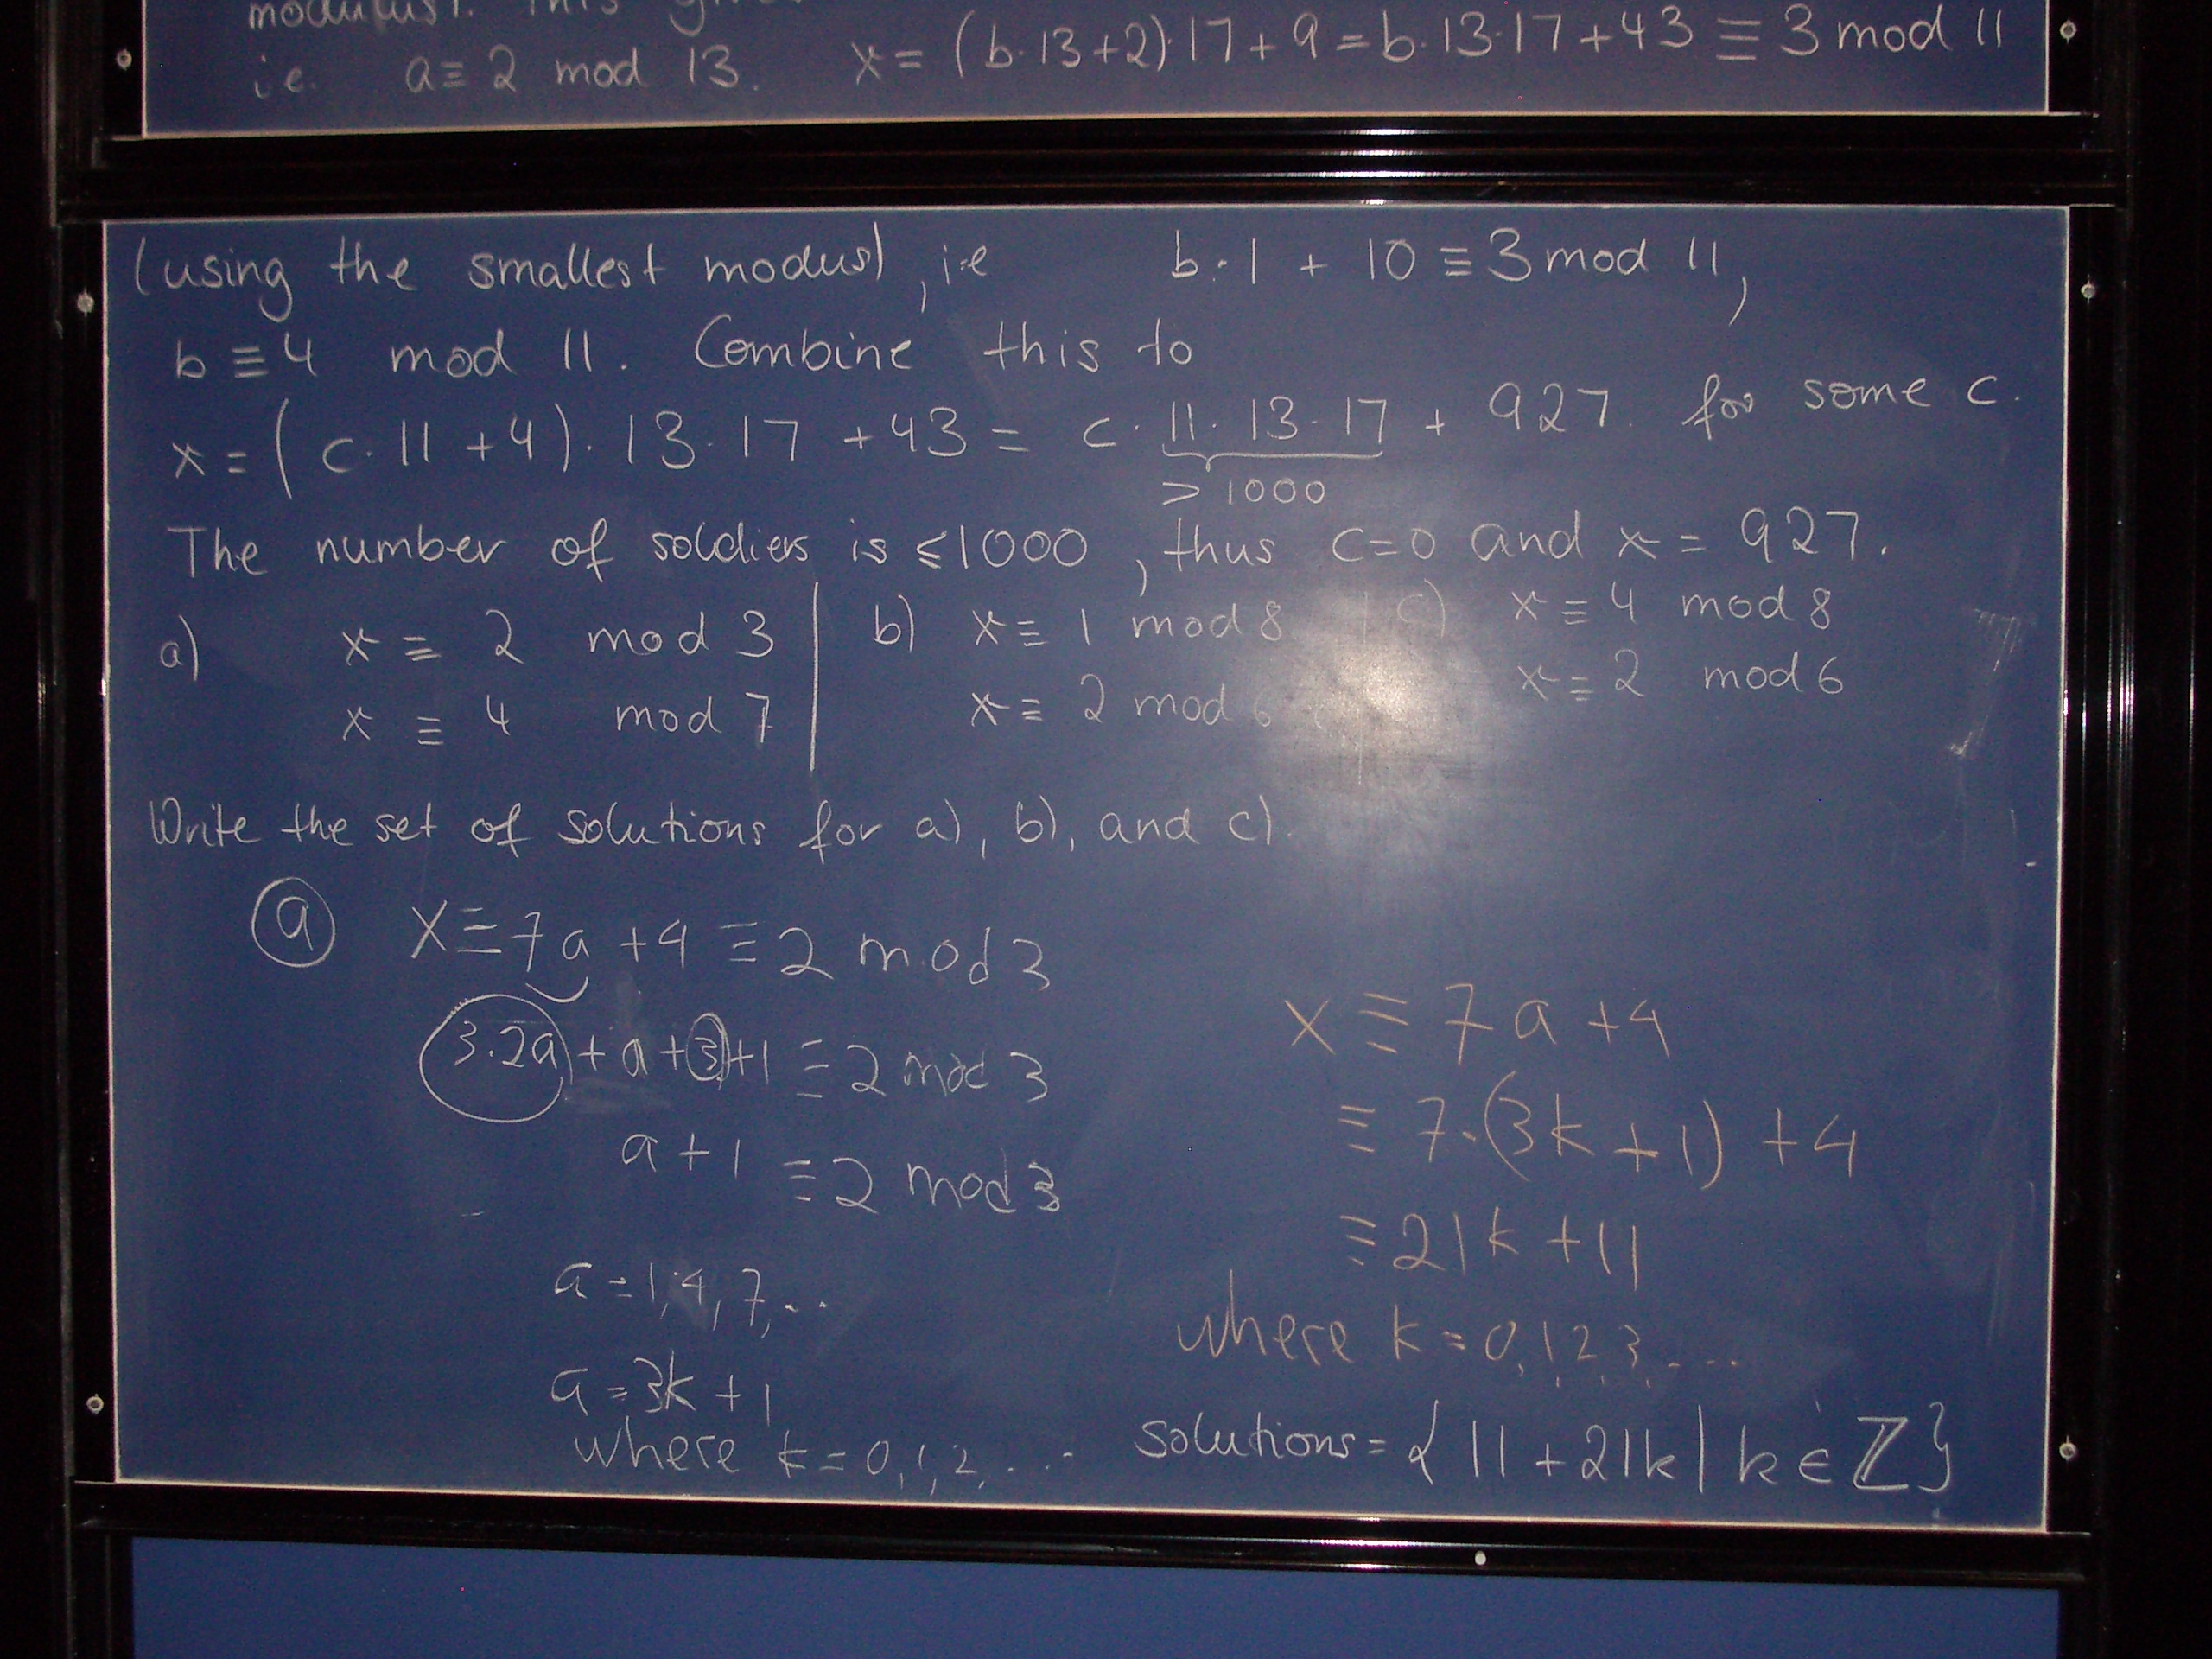 modulus). This
i.e. a ≡ 2 mod 13. x = (b·13+2)·17+9 = b·13·17+43 ≡ 3 mod 11
(using the smallest modus), i.e b·1 + 10 ≡ 3 mod 11,
b ≡ 4 mod 11. Combine this to
x = (c·11+4)·13·17+43 = c·11·13·17 + 927. for some c.
> 1000
The number of soldiers is ≤1000, thus c=0 and x = 927.
a) x ≡ 2 mod 3 | b) x ≡ 1 mod 8 | c) x ≡ 4 mod 8
x ≡ 4 mod 7 | x ≡ 2 mod 6 | x ≡ 2 mod 6
Write the set of solutions for a), b), and c)
a X ≡ 7a +4 ≡ 2 mod 3
3·2a + a + 3 + 1 ≡ 2 mod 3
a + 1 ≡ 2 mod 3
a = 1,4,7,..
a = 3k + 1
where k = 0,1,2,...
x ≡ 7a +4
≡ 7·(3k+1) +4
≡ 21k +11
where k = 0,1,2,3,....
solutions = { 11 + 21k | k ∈ ℤ }